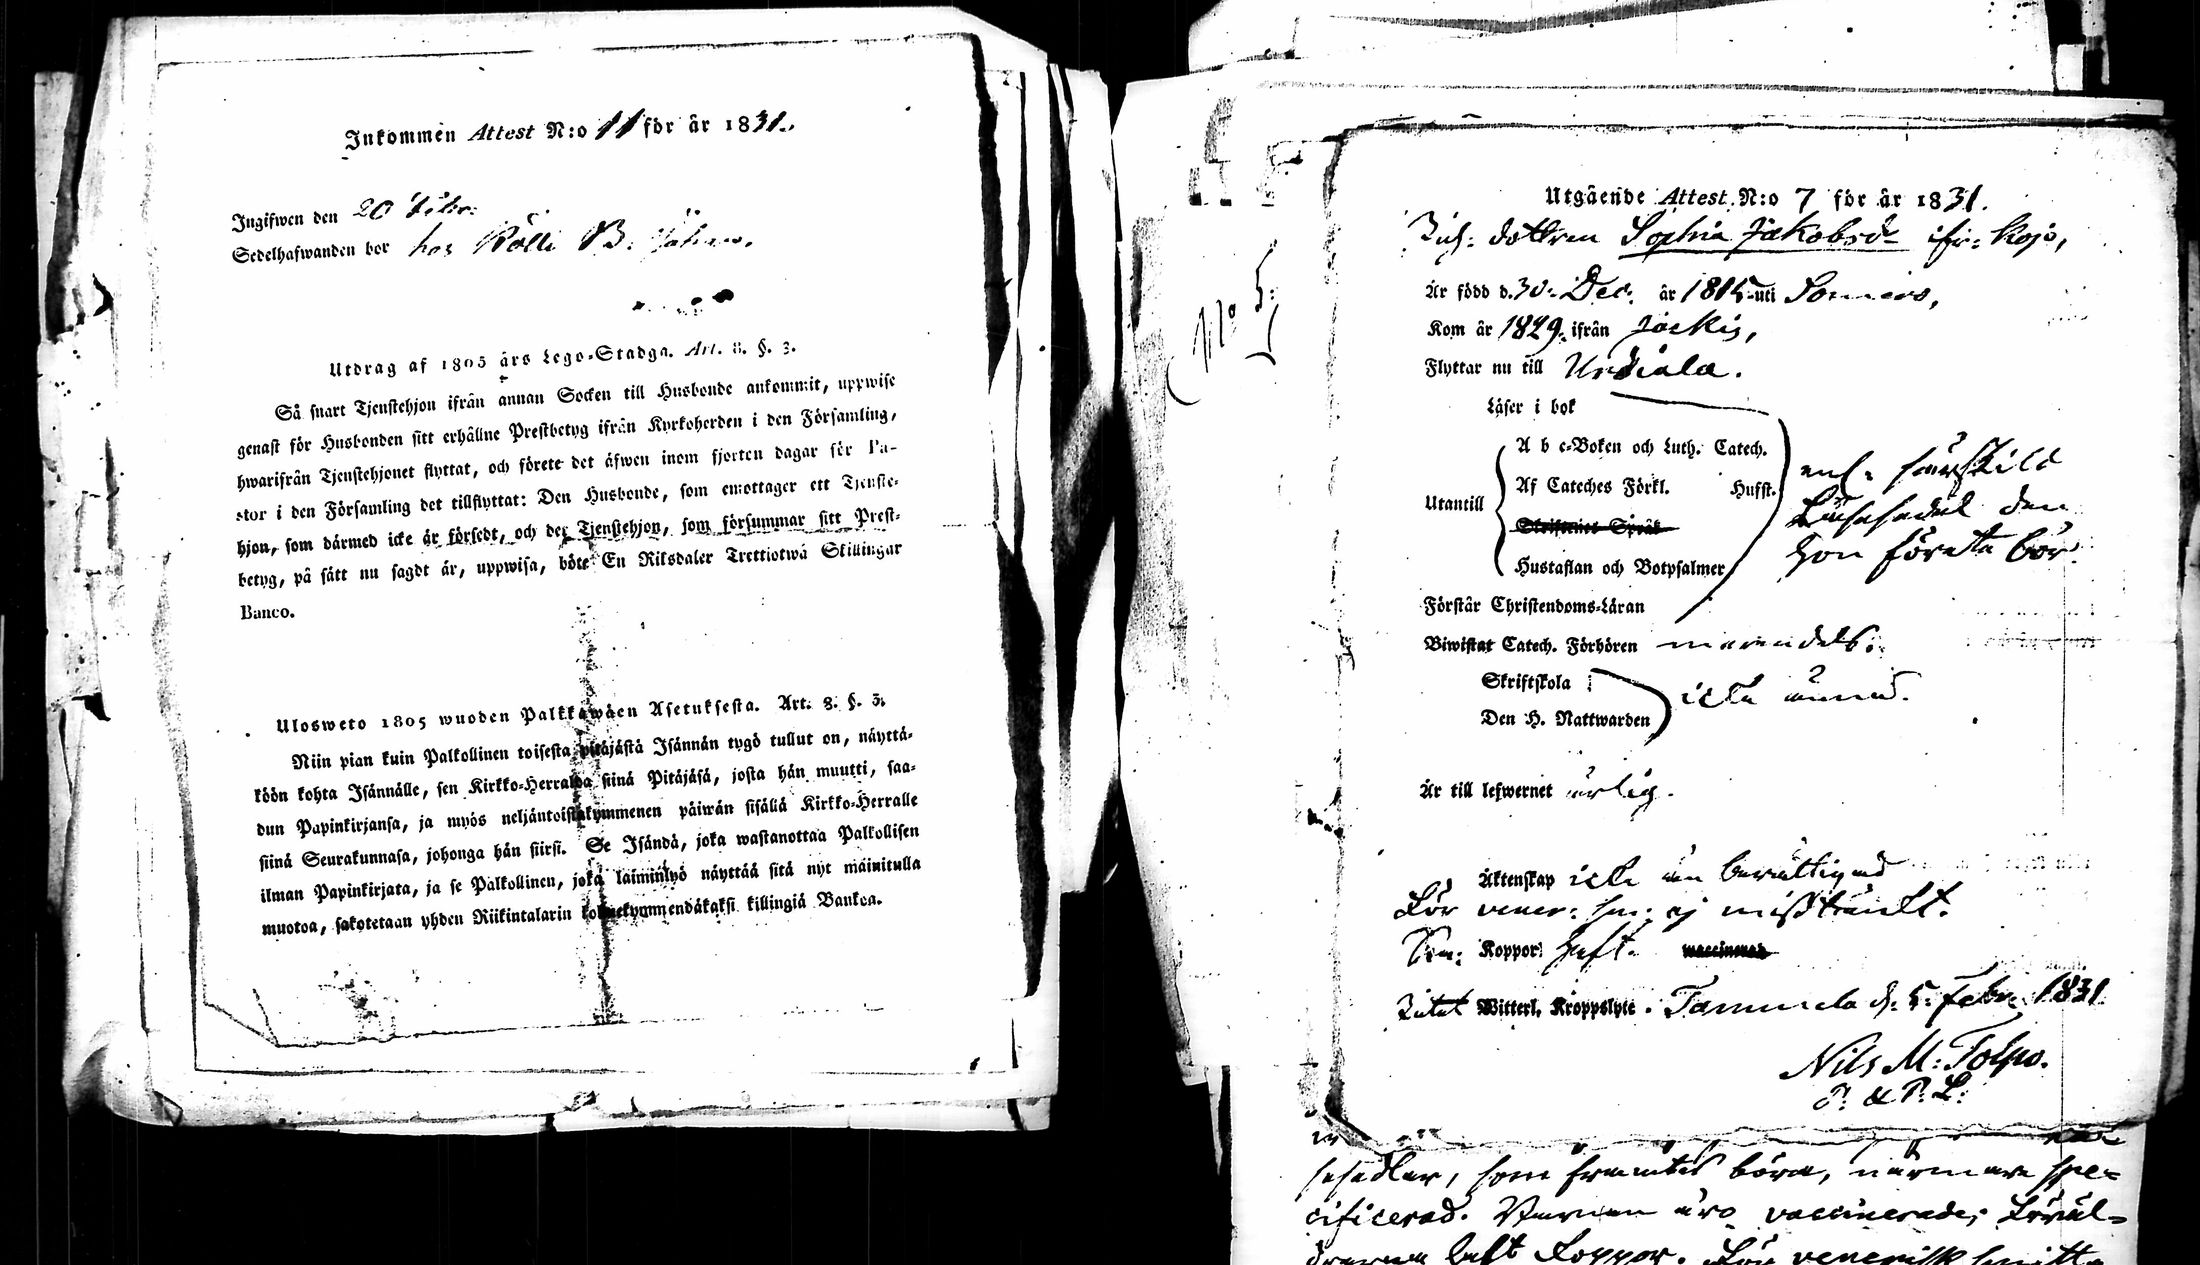 Inkommen Attest N:o 11 för år 1831.
Ingifwen den 20 Febr:
Sedelhafwanden bor hos Kölli B. Johan.
Utdrag af 1805 års Lego-Stadga. Art. 8. §. 3.
Så snart Tjenstehjon ifrån annan Socken till Husbonde ankommit, uppwise
genast för Husbonden sitt erhållne Prestbetyg ifrån Kyrkoherden i den Församling,
hwarifrån Tjenstehjonet flyttat, och förete det äfwen inom fjorton dagar för Pa-
stor i den Församling det tillflyttat: Den Husbonde, som emottager ett Tjenste-
hjon, som därmed icke är försedt, och det Tjenstehjon, som försummar sitt Prest-
betyg, på sätt nu sagdt är, uppwisa, böte En Riksdaler Trettiotwå Skillingar
Banco.
Ulosweto 1805 wuoden Palkkawäen Asetuksesta. Art. 8. §. 3.
Niin pian kuin Palkollinen toisesta pitäjästä Isännän tygö tullut on, näyttä-
köön kohta Isännälle, sen Kirkko-Herralda siinä Pitäjäsä, josta hän muutti, saa-
dun Papinkirjansa, ja myös neljäntoistakymmenen päiwän sisäliä Kirkko-Herralle
siinä Seurakunnasa, johonga hän siirsi. Se Isändä, joka wastanottaa Palkollisen
ilman Papinkirjata, ja se Palkollinen, joka laiminlyö näyttää sitä nyt mainitulla
muotoa, sakotetaan yhden Riikintalarin kolmekymmendäkaksi killingiä Bankoa.
N:o 5:
Utgående Attest N:o 7 för år 1831.
dottren Sophia Jakobsdr ifr: Kojo,
År född d. 30. Dec. år 1815 uti Somero,
Kom år 1829. ifrån Jockis,
Flyttar nu till Urdiala.
Läser i bok
A b c-Boken och Luth. Catech.
Af Cateches Förkl. Husst.
Utantill
Skriftenes Språk
Hustaflan och Botpsalmer
enl: särskild
Läsesedel den
hon förete bör.
Förstår Christendoms-Läran
Biwistat Catech. Förhören merendels.
Skriftskola
Den H. Nattwarden
icke ännu.
Är till lefwernet ärlig.
Äktenskap icke än berättigad
För vener: sm: ej misstänkt.
Koppor haft. waccinerad
Witterl. Kroppslyte. Tammela d. 5. Febr. 1831.
Nils M: Tolpo.
P: & P: L:
sesedlar, som framtes böra, närmare spe-
cificerad. Barnen äro vaccinerade; Föräl-
drarne haft koppor. För venerisk smitta